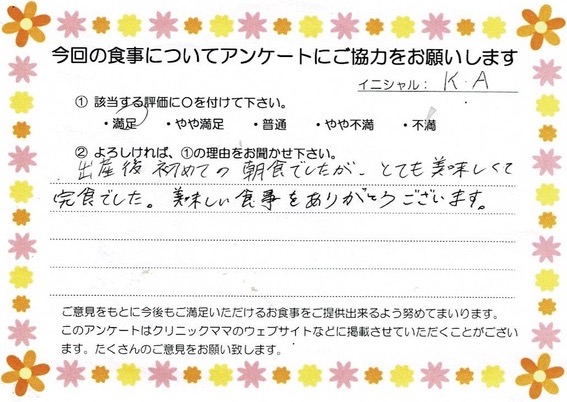 今回の食事についてアンケートにご協力をお願いします
イニシャル： K.A
① 該当する評価に〇を付けて下さい。
・満足 ・やや満足 ・普通 ・やや不満 ・不満
② よろしければ、①の理由をお聞かせ下さい。
出産後初めての朝食でしたが、とても美味しくて
完食でした。美味しい食事をありがとうございます。
ご意見をもとに今後もご満足いただけるお食事をご提供出来るよう努めてまいります。
このアンケートはクリニックママのウェブサイトなどに掲載させていただくことがござい
ます。たくさんのご意見をお願い致します。